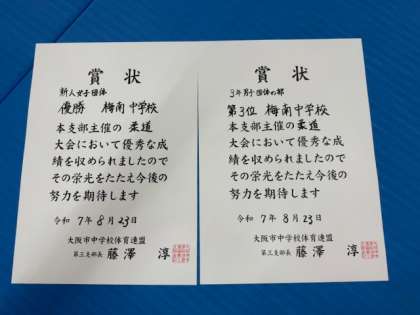 賞状
新人女子団体
優勝 梅南中学校
本支部主催の 柔道
大会において優秀な成
績を収められましたので
その栄光をたたえ今後の
努力を期待します
令和 7年 8月 23日
大阪市中学校体育連盟
第三支部長 藤澤 淳
賞状
3年男子団体の部
第3位 梅南中学校
本支部主催の 柔道
大会において優秀な成
績を収められましたので
その栄光をたたえ今後の
努力を期待します
令和 7年 8月 23日
大阪市中学校体育連盟
第三支部長 藤澤 淳